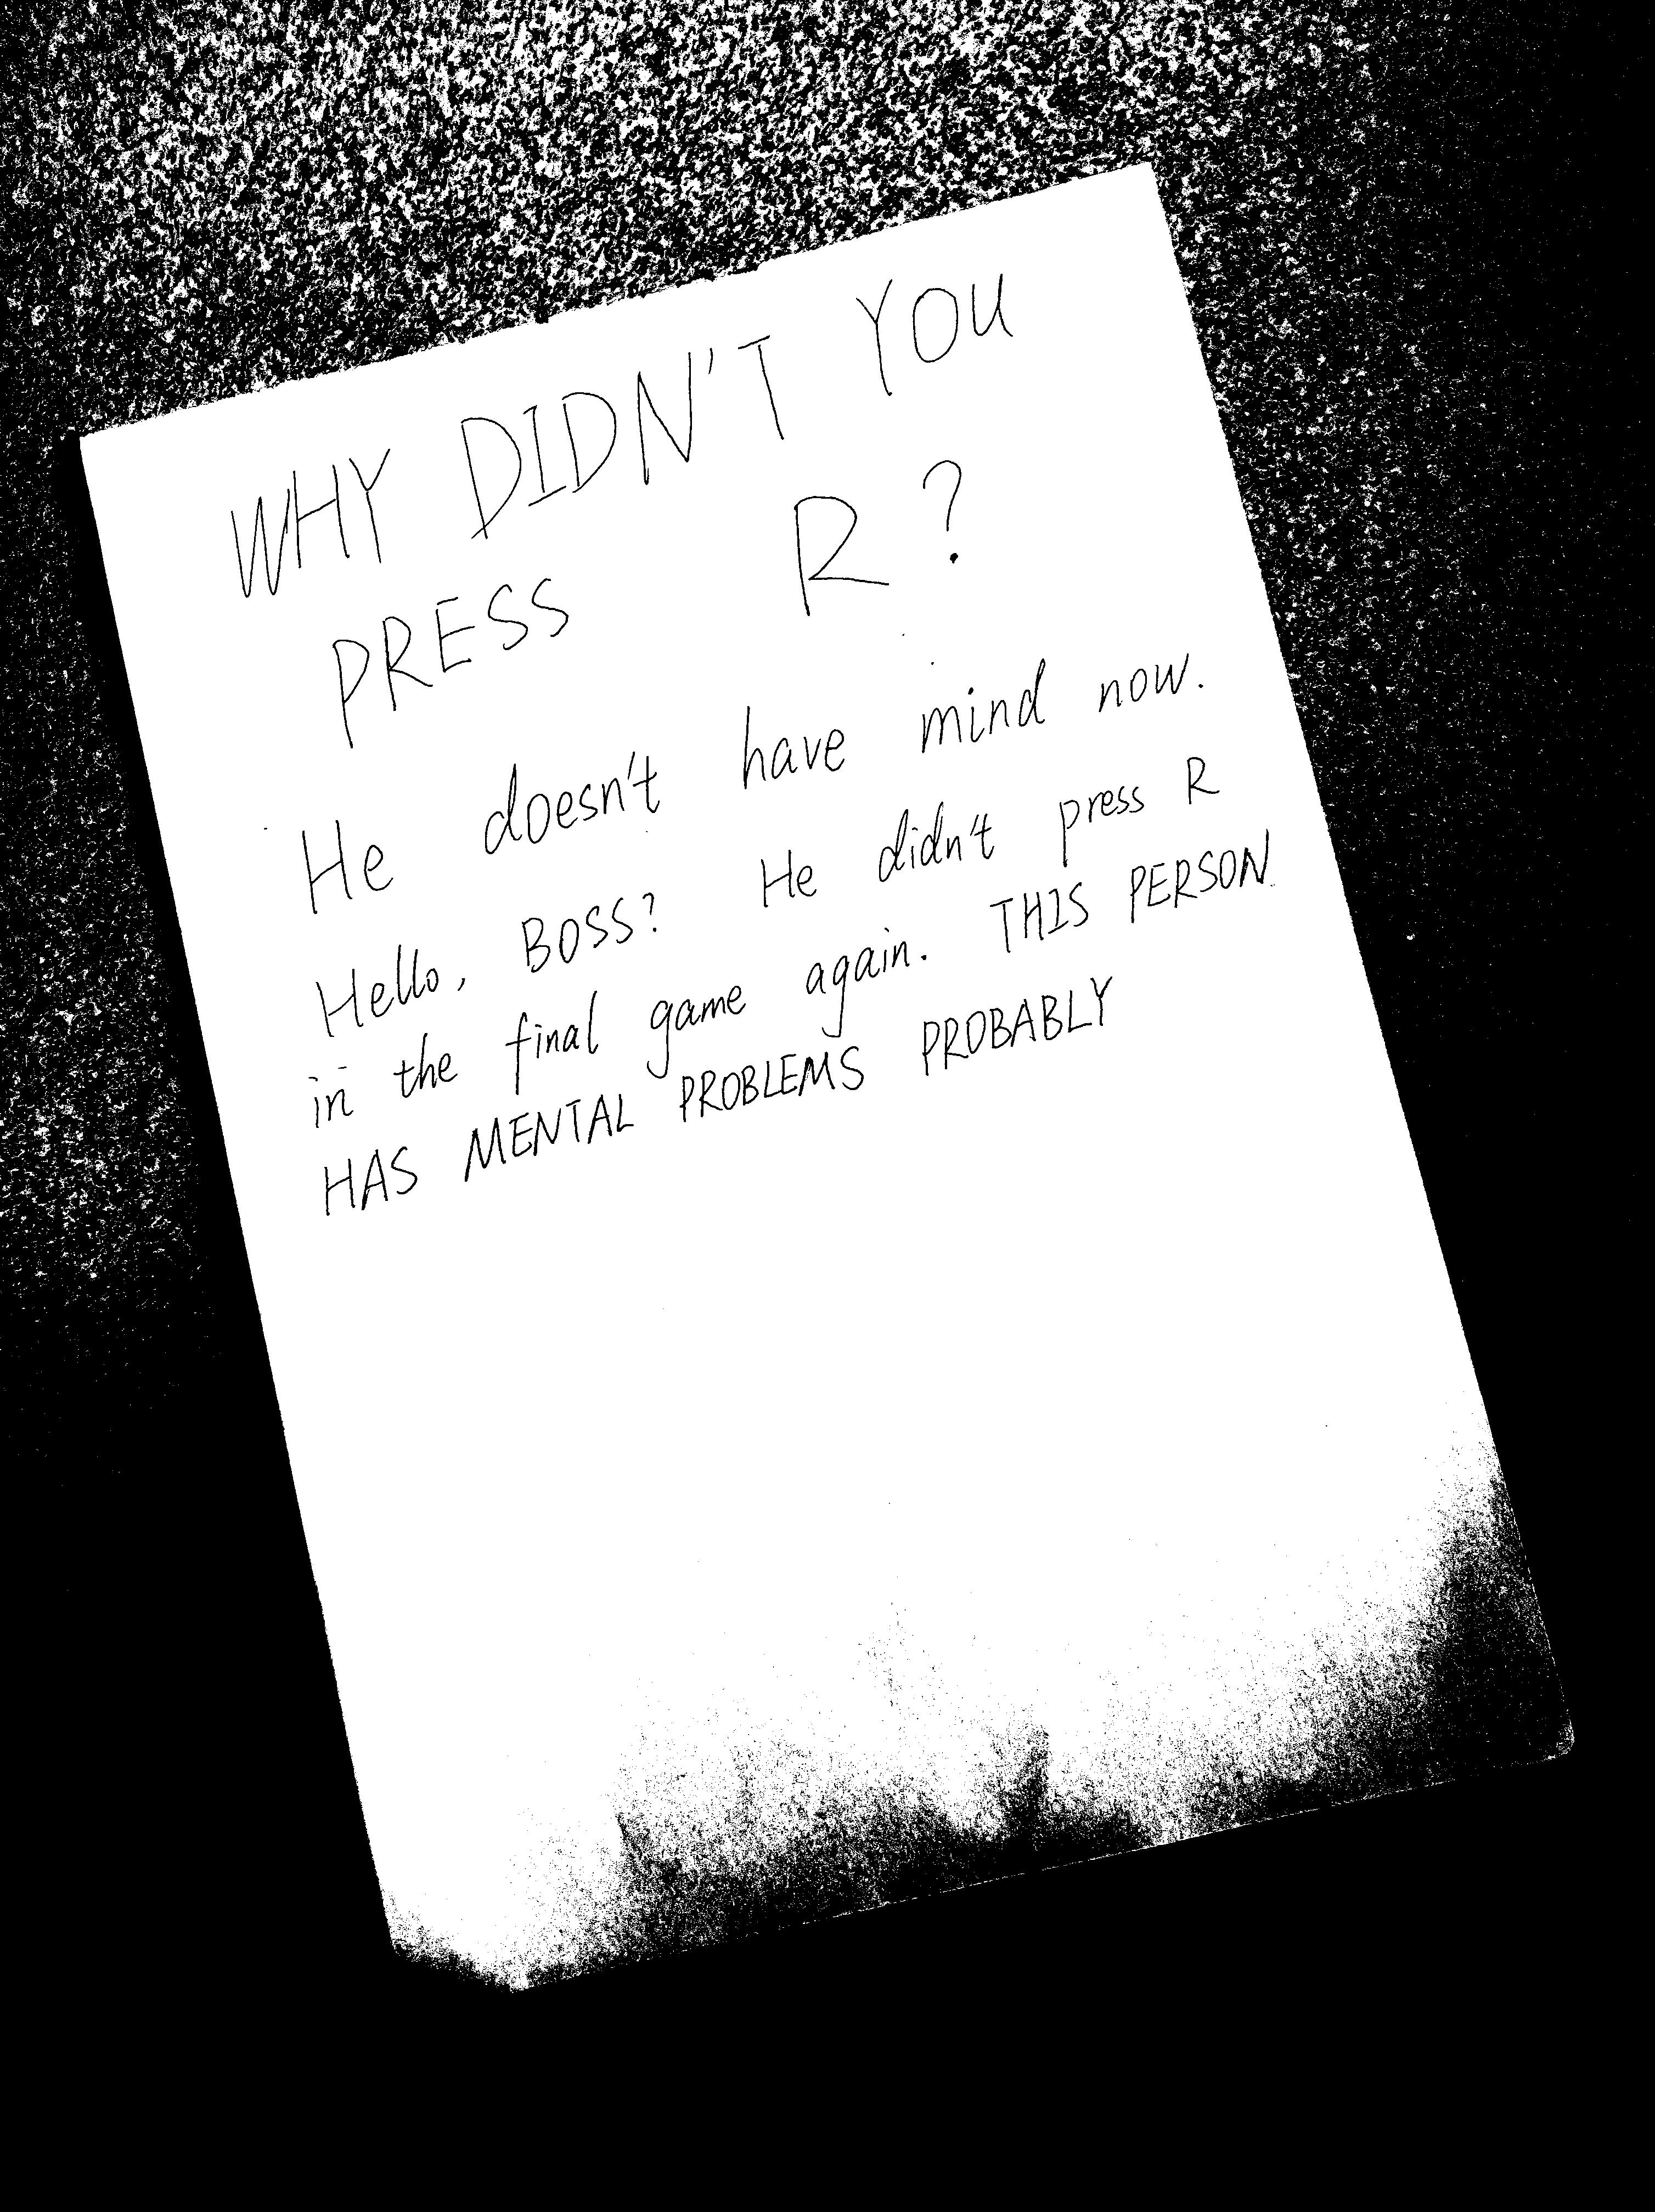 WHY DIDN'T YOU
PRESS R?
He doesn't have mind now.
Hello, BOSS? He didn't press R
in the final game again. THIS PERSON
HAS MENTAL PROBLEMS PROBABLY